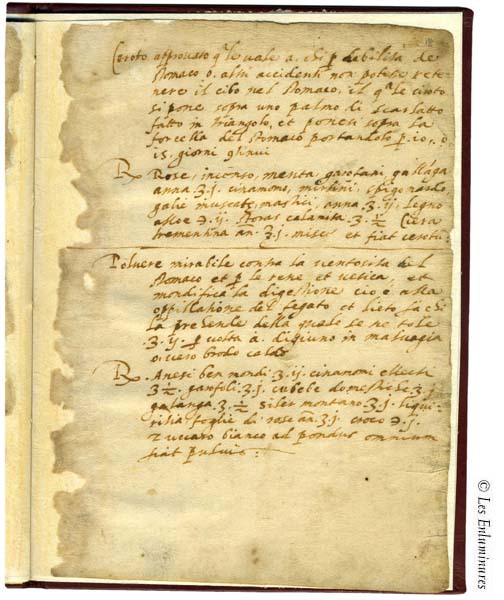 Ceroto approvato q͂le uale a. chi ꝑ debilita de
stomaco o. altri accidenti non potesse rete-
nere il cibo nel stomaco, il q͂le ceroto
si pone sopra uno palmo di scarlatto
fatto in triangolo, et ponesi sopra la
forcella del stomaco portandolo ꝑ. io, o
15 giorni
℞ Rose, incenso, menta garofani, gallãga
anna ʒ.j. cinamomo, mirtini, spigo nardo,
galie muscate, mastici, anna ʒ.ij. legno
aloe ℈.ij. storas calamita ʒ.½ Ciera
trementina an. ʒ.j. misce et fiat ceroto.
Poluere mirabile contra la uentosita del
stomaco et ꝑ le rene et uesica, et
mondifica la digestione cio è. alla
oppillatione del fegato et lieto fa chi
la prehende della quale se ne tole
ʒ.ij. ꝑ uolta a. digiuno in maluagia
ouero brodo caldo
℞. Anesi ben mondi ʒ.ij. cinamomi electi
ʒ½ garofoli ʒ.j. cubebe domestiche ʒ.j
galanga ʒ.½ siler montano ʒ.j. liqui-
ritia foglie di rose añ. ʒ.j. croco ℈.j.
Zuccaro bianco ad pondus omnium
fiat puluis :
© Les Enluminures